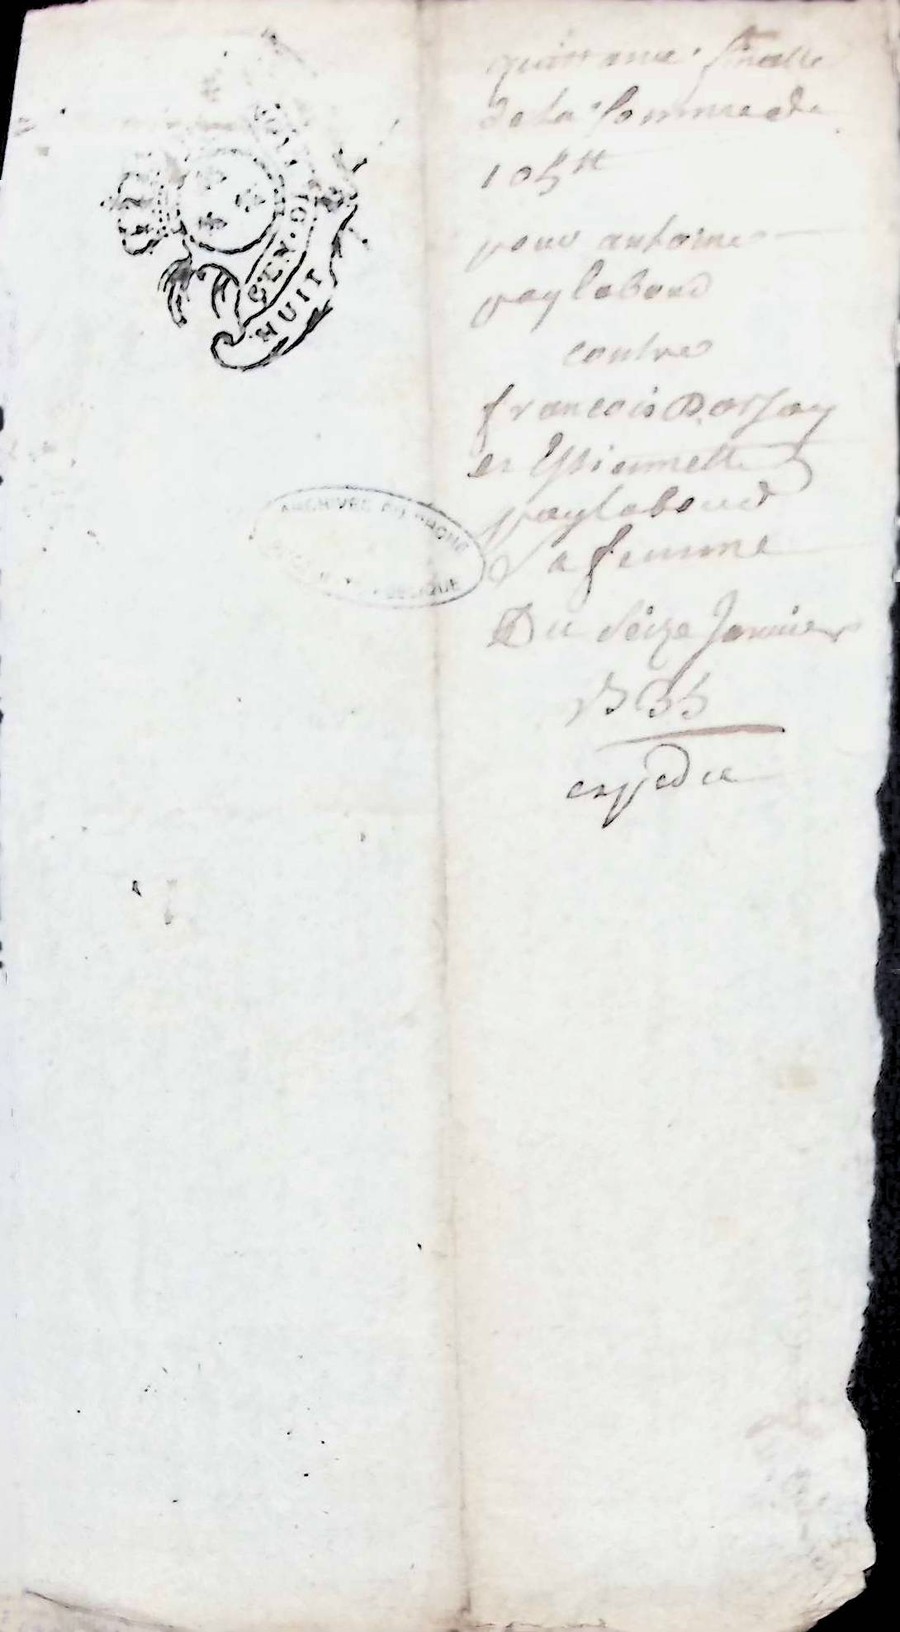 GEN.
HUIT
ARCHIVES DU RHONE
quittance finalle
de la somme de
105 tt
pour antoine
paylaboud
contre
francois Dorfay
et Estiennette
paylaboud
sa femme
Du seize Janvier
1735
expedie